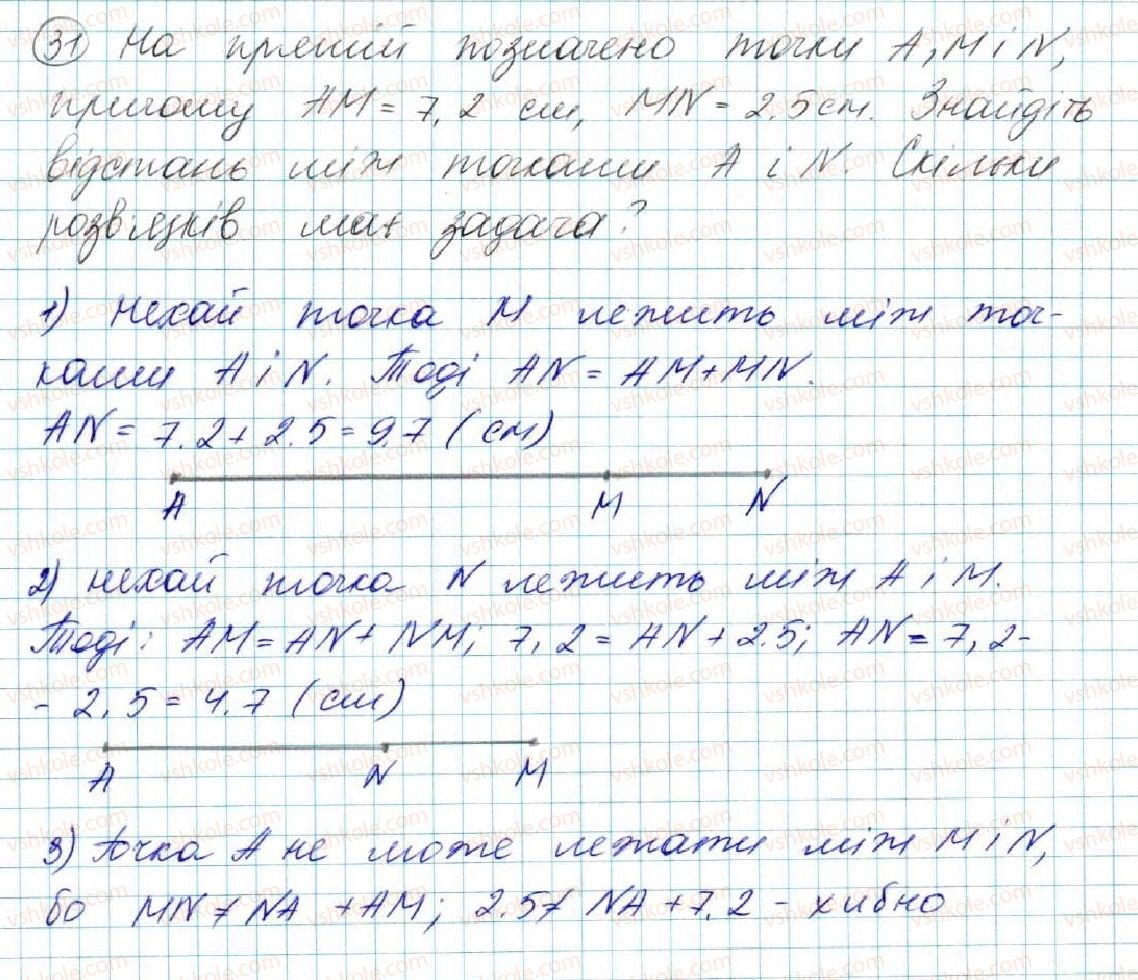 31 На прямій позначено точки A, M і N,
причому AM = 7,2 см, MN = 2.5 см. Знайдіть
відстань між точками A і N. Скільки
розв'язків має задача?
1) Нехай точка M лежить між точ-
ками A і N. Тоді AN = AM + MN.
AN = 7.2 + 2.5 = 9.7 (см)
A M N
2) Нехай точка N лежить між A і M.
Тоді: AM = AN + NM; 7,2 = AN + 2.5; AN = 7,2-
- 2,5 = 4.7 (см)
A N M
3) Точка A не може лежати між M і N,
бо MN ≠ NA + AM; 2.5 ≠ NA + 7.2 - хибно
vshkole.com